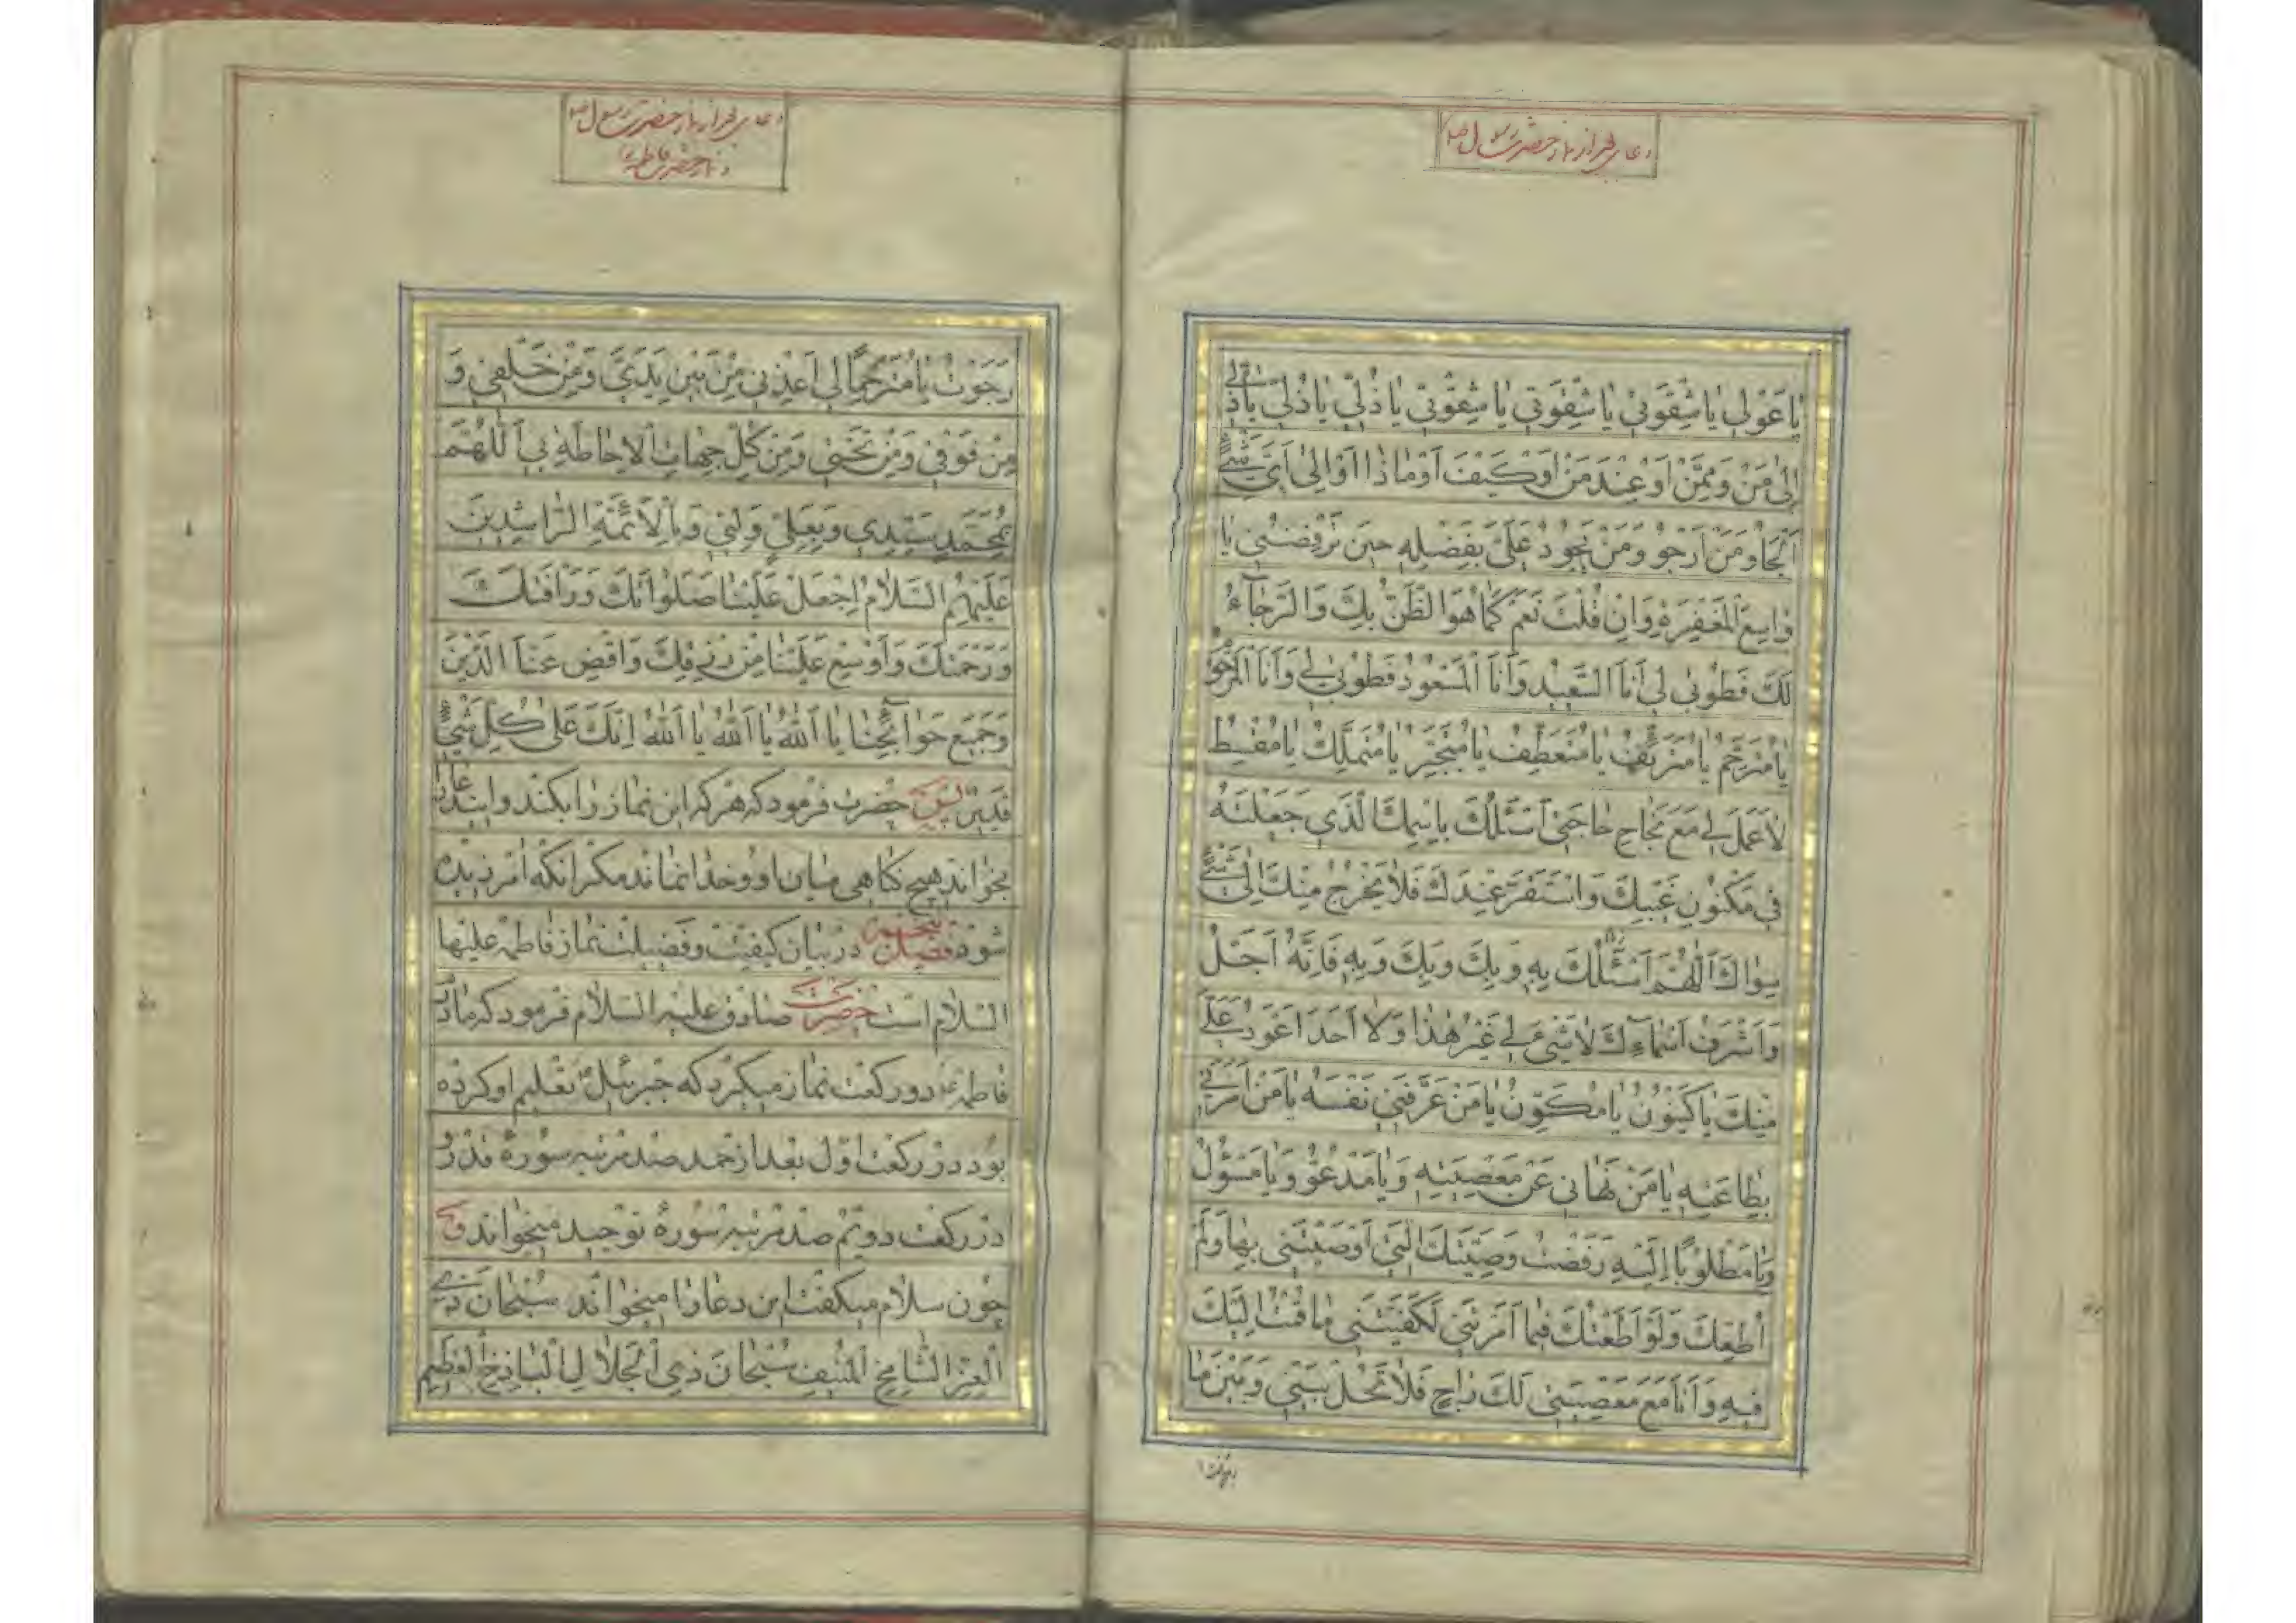 دعای بعد از نماز حضرت رسول ص
یا عَوْلی یا شِقْوَتی یا شِقْوَتی یا شِقْوَتی یا ذُلّی یا ذُلّی یا ذُلّی
اِلی مَنْ وَمِمَّنْ اَوْ عِنْدَ مَنْ اَوْ کَیْفَ اَوْ ماذا اَوْ اِلی اَیِّ شَیْءٍ
اَلْجَأُ وَمَنْ اَرْجُو وَمَنْ یَجُودُ عَلَیَّ بِفَضْلِهِ حینَ تَرْفُضُنی یا
واسِعَ الْمَغْفِرَةِ وَاِنْ قُلْتَ نَعَمْ کَما هُوَ الظَّنُّ بِکَ وَالرَّجآءُ
لَکَ فَطُوبی لی اَنَا السَّعیدُ وَاَنَا الْمَسْعُودُ فَطُوبی لی وَاَنَا الْمَرْحُومُ
یا مُتَرَحِّمُ یا مُتَرَئِّفُ یا مُتَعَطِّفُ یا مُتَجَبِّرُ یا مُتَمَلِّکُ یا مُقْسِطُ
لا عَمَلَ لی مَعَ نَجاحِ حاجَتی اَسْئَلُکَ بِاسْمِکَ الَّذی جَعَلْتَهُ
فی مَکْنُونِ غَیْبِکَ وَاسْتَقَرَّ عِنْدَکَ فَلا یَخْرُجُ مِنْکَ اِلی شَیْءٍ
سِواکَ اَللّهُمَّ اَسْئَلُکَ بِهِ وَبِکَ وَبِکَ وَبِهِ فَاِنَّهُ اَجَلُّ
وَاَشْرَفُ اَسْمآئِکَ لا شَیْءَ لی غَیْرُ هذا وَلا اَحَدَ اَعْوَدُ عَلَیَّ
مِنْکَ یا کَیْنُونُ یا مُکَوِّنُ یا مَنْ عَرَّفَنی نَفْسَهُ یا مَنْ اَمَرَنی
بِطاعَتِهِ یا مَنْ نَهانی عَنْ مَعْصِیَتِهِ وَیا مَدْعُوُّ وَیا مَسْؤُلُ
وَیا مَطْلُوبًا اِلَیْهِ رَفَضْتُ وَصِیَّتَکَ الَّتی اَوْصَیْتَنی بِها وَلَمْ
اُطِعْکَ وَلَوْ اَطَعْتُکَ فیما اَمَرْتَنی لَکَفَیْتَنی ما قُمْتُ اِلَیْکَ
فیهِ وَاَنَا مَعَ مَعْصِیَتی لَکَ راجٍ فَلا تَحُلْ بَیْنی وَبَیْنَ ما
دعای بعد از نماز حضرت رسول ص
و نماز حضرت فاطمه ع
رَجَوْتُ یا مُتَرَحِّمًا لی اَعِذْنی مِنْ بَیْنِ یَدَیَّ وَمِنْ خَلْفی وَ
مِنْ فَوْقی وَمِنْ تَحْتی وَمِنْ کُلِّ جِهاتِ الْاِحاطَةِ بی اَللّهُمَّ
بِمُحَمَّدٍ سَیِّدی وَبِعَلِیٍّ وَلِیّی وَبِالْاَئِمَّةِ الرّاشِدینَ
عَلَیْهِمُ السَّلامُ اِجْعَلْ عَلَیْنا صَلَواتِکَ وَرَاْفَتَکَ
وَرَحْمَتَکَ وَاَوْسِعْ عَلَیْنا مِنْ رِزْقِکَ وَاقْضِ عَنَّا الدَّیْنَ
وَجَمیعَ حَوآئِجِنا یا اَللّهُ یا اَللّهُ یا اَللّهُ اِنَّکَ عَلی کُلِّ شَیْءٍ
قَدیرٌ پس حضرت فرمود که هر که این نماز را بکند و این دعا را
بخواند هیچ گناهی میان او و خدا نماند مگر آنکه آمرزیده
شود فصل پنجم در بیان کیفیت و فضیلت نماز فاطمه علیها
السلام است حضرت صادق علیه السلام فرمود که مادرم
فاطمه ع دو رکعت نماز میکرد که جبرئیل تعلیم او کرده
بود در رکعت اول بعد از حمد صد مرتبه سورهٔ قدر و
در رکعت دویم صد مرتبه سورهٔ توحید میخواند و
چون سلام میگفت این دعا را میخواند سُبْحانَ ذِی
الْعِزِّ الشّامِخِ الْمُنیفِ سُبْحانَ ذِی الْجَلالِ الْباذِخِ الْعَظیمِ